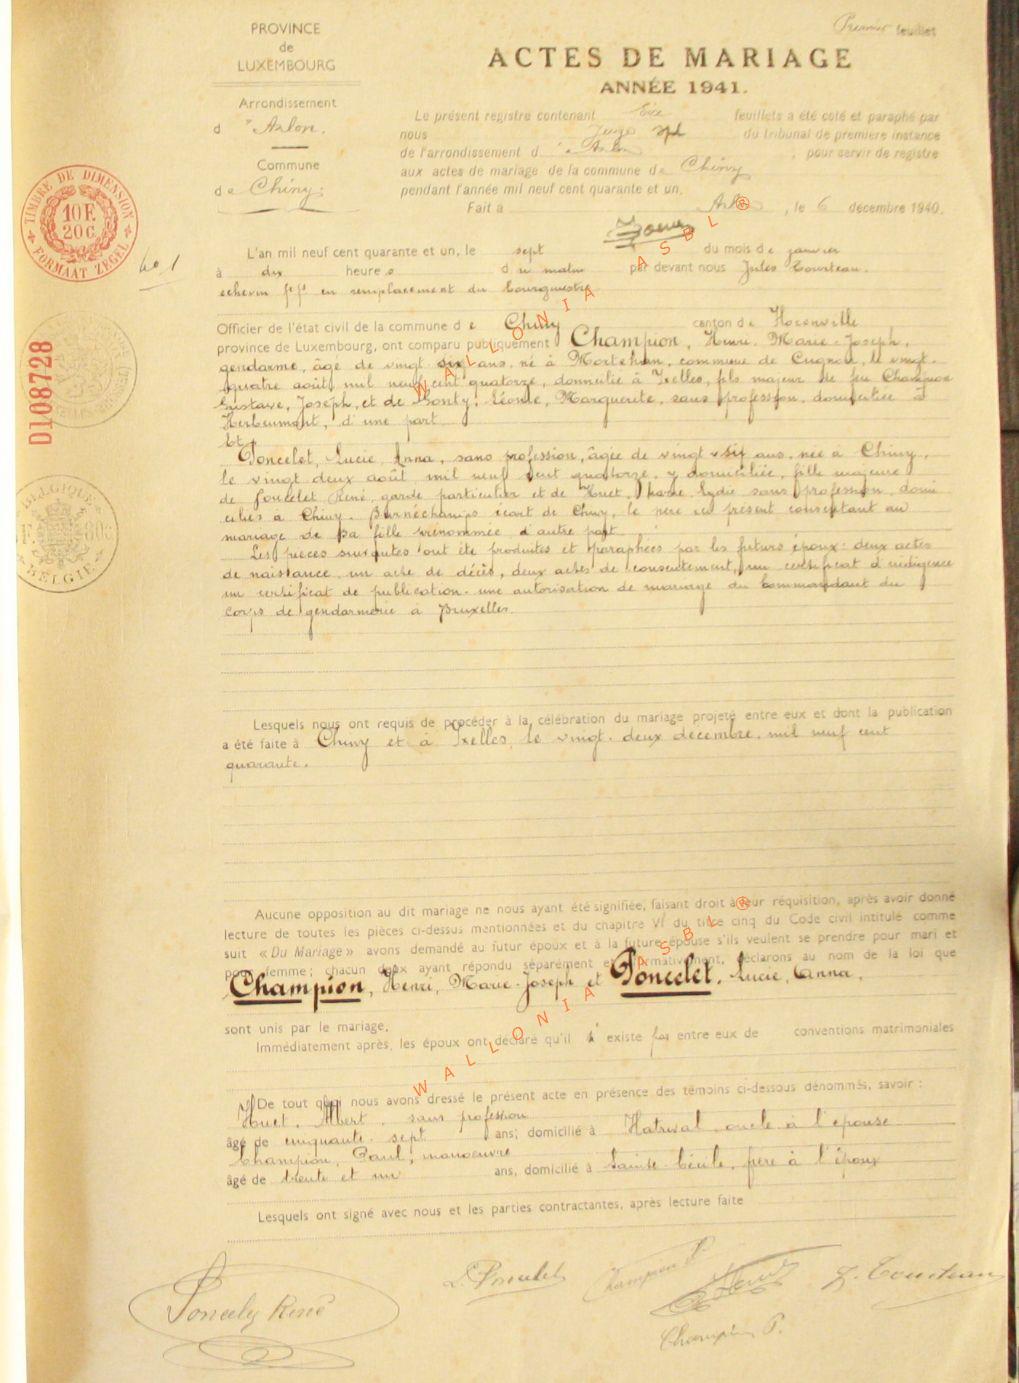 Premier feuillet
PROVINCE
de
LUXEMBOURG
Arrondissement
d'Arlon.
Commune
de Chiny.
ACTES DE MARIAGE
ANNÉE 1941.
Le présent registre contenant feuillets a été coté et paraphé par
nous Juge du tribunal de première instance
de l'arrondissement d'Arlon, pour servir de registre
aux actes de mariage de la commune de Chiny
pendant l'année mil neuf cent quarante et un.
Fait à Arlon, le 6 décembre 1940.
TIMBRE DE DIMENSION
10 F.
20 C.
FORMAAT ZEGEL
No 1
D108728
BELGIQUE
BELGIE
L'an mil neuf cent quarante et un, le sept du mois de janvier
à dix heures du matin par devant nous Jules Tourteau.
echevin ff en remplacement du bourgmestre
Officier de l'état civil de la commune de Chiny canton de Florenville
province de Luxembourg, ont comparu publiquement Champion, Henri, Marie-Joseph,
gendarme, âgé de vingt-six ans, né à Mortehan, commune de Cugnon, le vingt-
quatre août mil neuf cent quatorze, domicilié à Ixelles, fils majeur de feu Champion
Gustave, Joseph, et de Gonty, Léonie, Marguerite, sans profession, domiciliée à
Herbeumont, d'une part
Et
Poncelet, Lucie, Anna, sans profession, âgée de vingt-six ans, née à Chiny,
le vingt deux août mil neuf cent quatorze, y domiciliée, fille majeure
de Poncelet René, garde particulier et de Huet, Lydie sans profession, domi
ciliés à Chiny. écart de Chiny, le père ici présent consentant au
mariage de sa fille prénommée d'autre part
Les pièces suivantes ont été produites et paraphées par les futurs époux: deux actes
de naissance, un acte de décès, deux actes de consentement, un certificat d'indigence
un certificat de publication. une autorisation de mariage du Commandant du
corps de gendarmerie à Bruxelles.
Lesquels nous ont requis de procéder à la célébration du mariage projeté entre eux et dont la publication
a été faite à Chiny et à Ixelles, le vingt-deux décembre mil neuf cent
quarante.
Aucune opposition au dit mariage ne nous ayant été signifiée, faisant droit à leur réquisition, après avoir donné
lecture de toutes les pièces ci-dessus mentionnées et du chapitre VI du titre cinq du Code civil intitulé comme
suit «Du Mariage» avons demandé au futur époux et à la future épouse s'ils veulent se prendre pour mari et
pour femme; chacun d'eux ayant répondu séparément et affirmativement, déclarons au nom de la loi que
Champion, Henri, Marie-Joseph et Poncelet, Lucie, Anna,
sont unis par le mariage.
Immédiatement après, les époux ont déclaré qu'il n'existe pas entre eux de conventions matrimoniales
De tout quoi nous avons dressé le présent acte en présence des témoins ci-dessous dénommés, savoir :
Huet, Albert, sans profession
âgé de cinquante-sept ans, domicilié à Hatrival, oncle à l'épouse
Champion, Paul, manoeuvre
âgé de trente et un ans, domicilié à Sainte-Cécile, frère à l'époux
Lesquels ont signé avec nous et les parties contractantes, après lecture faite
Poncelet René
L. Poncelet
Champion
Huet
J. Tourteau
Champion P.
WALLONIA ASBL®
WALLONIA ASBL®